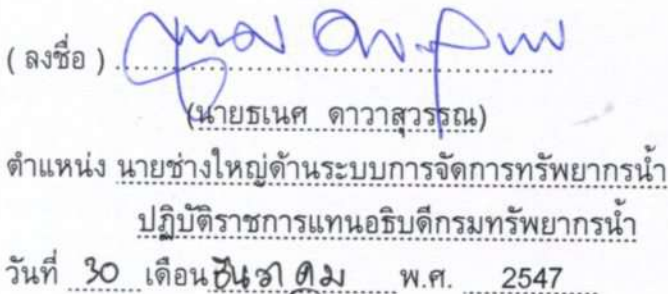 ( ลงชื่อ )
(นายธเนศ ดาวาสุวรรณ)
ตำแหน่ง นายช่างใหญ่ด้านระบบการจัดการทรัพยากรน้ำ
ปฏิบัติราชการแทนอธิบดีกรมทรัพยากรน้ำ
วันที่ 30 เดือน ธันวาคม พ.ศ. 2547